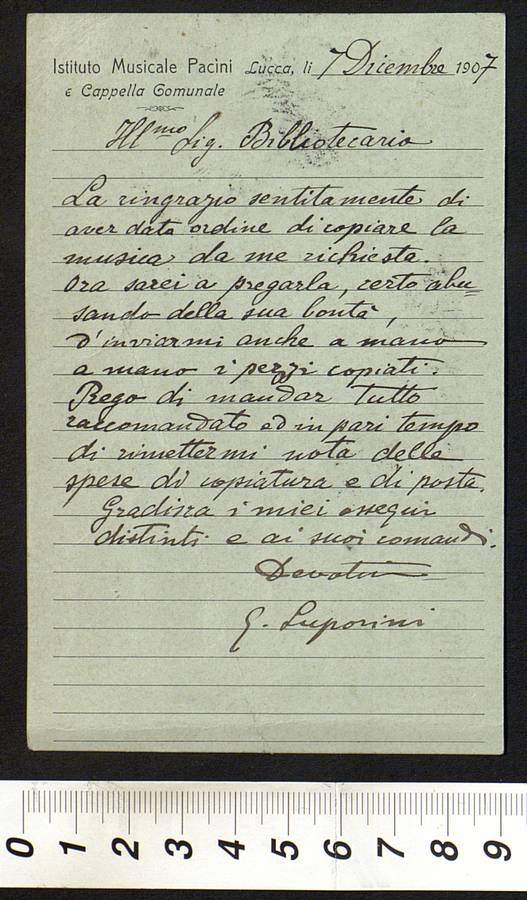 Istituto Musicale Pacini Lucca, li 7 Dicembre 1907
e Cappella Comunale
Ill.mo Sig. Bibliotecario
La ringrazio sentitamente di
aver dato ordine di copiare la
musica da me richiesta.
Ora sarei a pregarla, certo abu=
sando della sua bontà,
d'inviarmi anche a mano
a mano i pezzi copiati.
Prego di mandar tutto
raccomandato ed in pari tempo
di rimettermi nota delle
spese di copiatura e di posta.
Gradisca i miei ossequi
distinti e ai suoi comandi.
G. Luporini
0 1 2 3 4 5 6 7 8 9